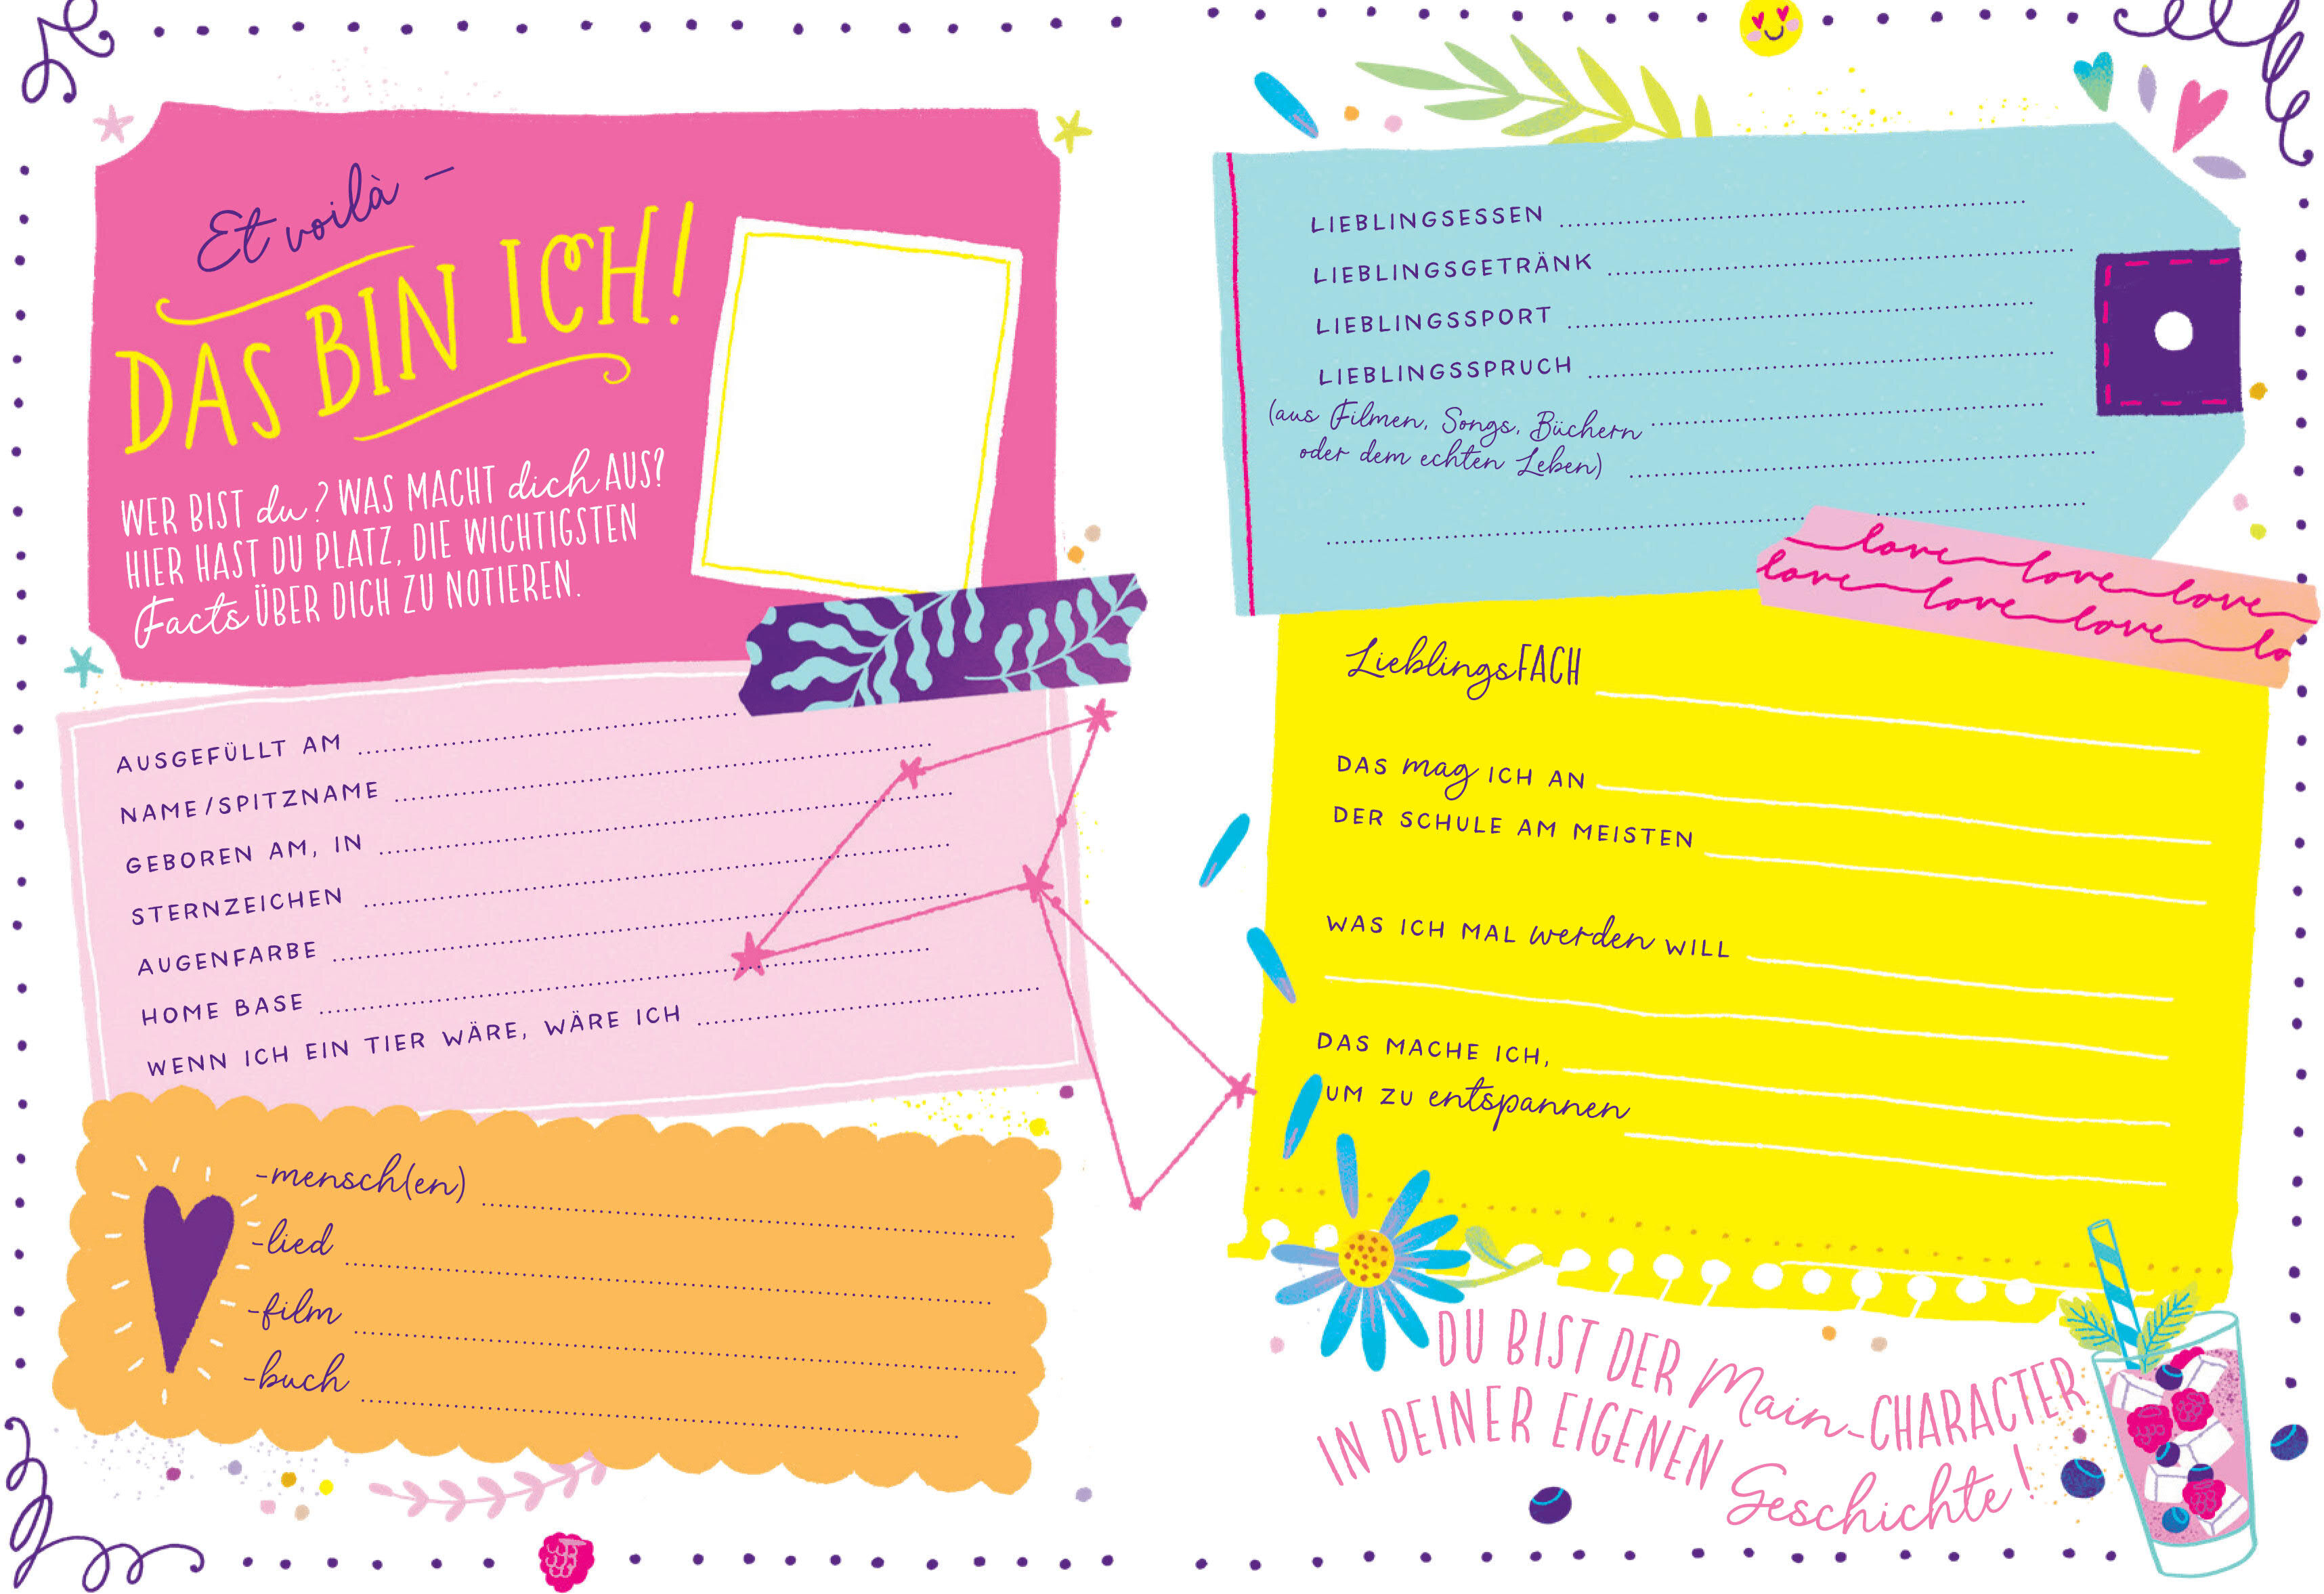 Et voilà –
DAS BIN ICH!
WER BIST du? WAS MACHT dich AUS?
HIER HAST DU PLATZ, DIE WICHTIGSTEN
Facts ÜBER DICH ZU NOTIEREN.
AUSGEFÜLLT AM
NAME/SPITZNAME
GEBOREN AM, IN
STERNZEICHEN
AUGENFARBE
HOME BASE
WENN ICH EIN TIER WÄRE, WÄRE ICH
-mensch(en)
-lied
-film
-buch
LIEBLINGSESSEN
LIEBLINGSGETRÄNK
LIEBLINGSSPORT
LIEBLINGSSPRUCH
(aus Filmen, Songs, Büchern
oder dem echten Leben)
love love love
love love love lo
LieblingsFACH
DAS mag ICH AN
DER SCHULE AM MEISTEN
WAS ICH MAL werden WILL
DAS MACHE ICH,
UM ZU entspannen
DU BIST DER Main-CHARACTER
IN DEINER EIGENEN Geschichte!